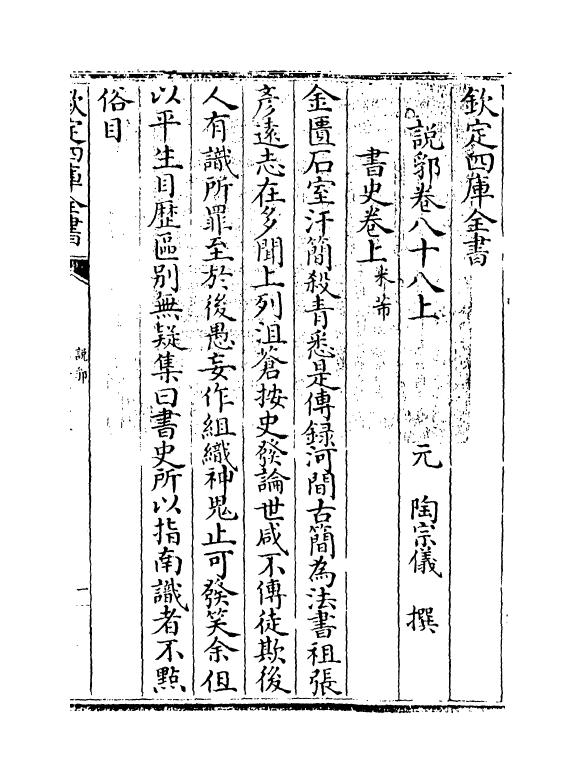 欽定四庫全書
説郛卷八十八上　元　陶宗儀　撰
書史卷上米芾
金匱石室汗簡殺青悉是傳録河間古簡為法書祖張
彦遠志在多聞上列沮蒼按史發論世咸不傳徒欺後
人有識所罪至於後愚妄作組織神鬼止可發笑余但
以平生目歴區别無疑集曰書史所以指南識者不點
俗目
欽定四庫全書
説郛
一